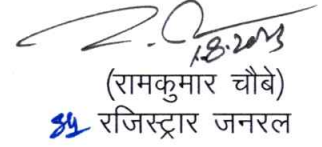 1.8.2023
(रामकुमार चौबे)
रजिस्ट्रार जनरल